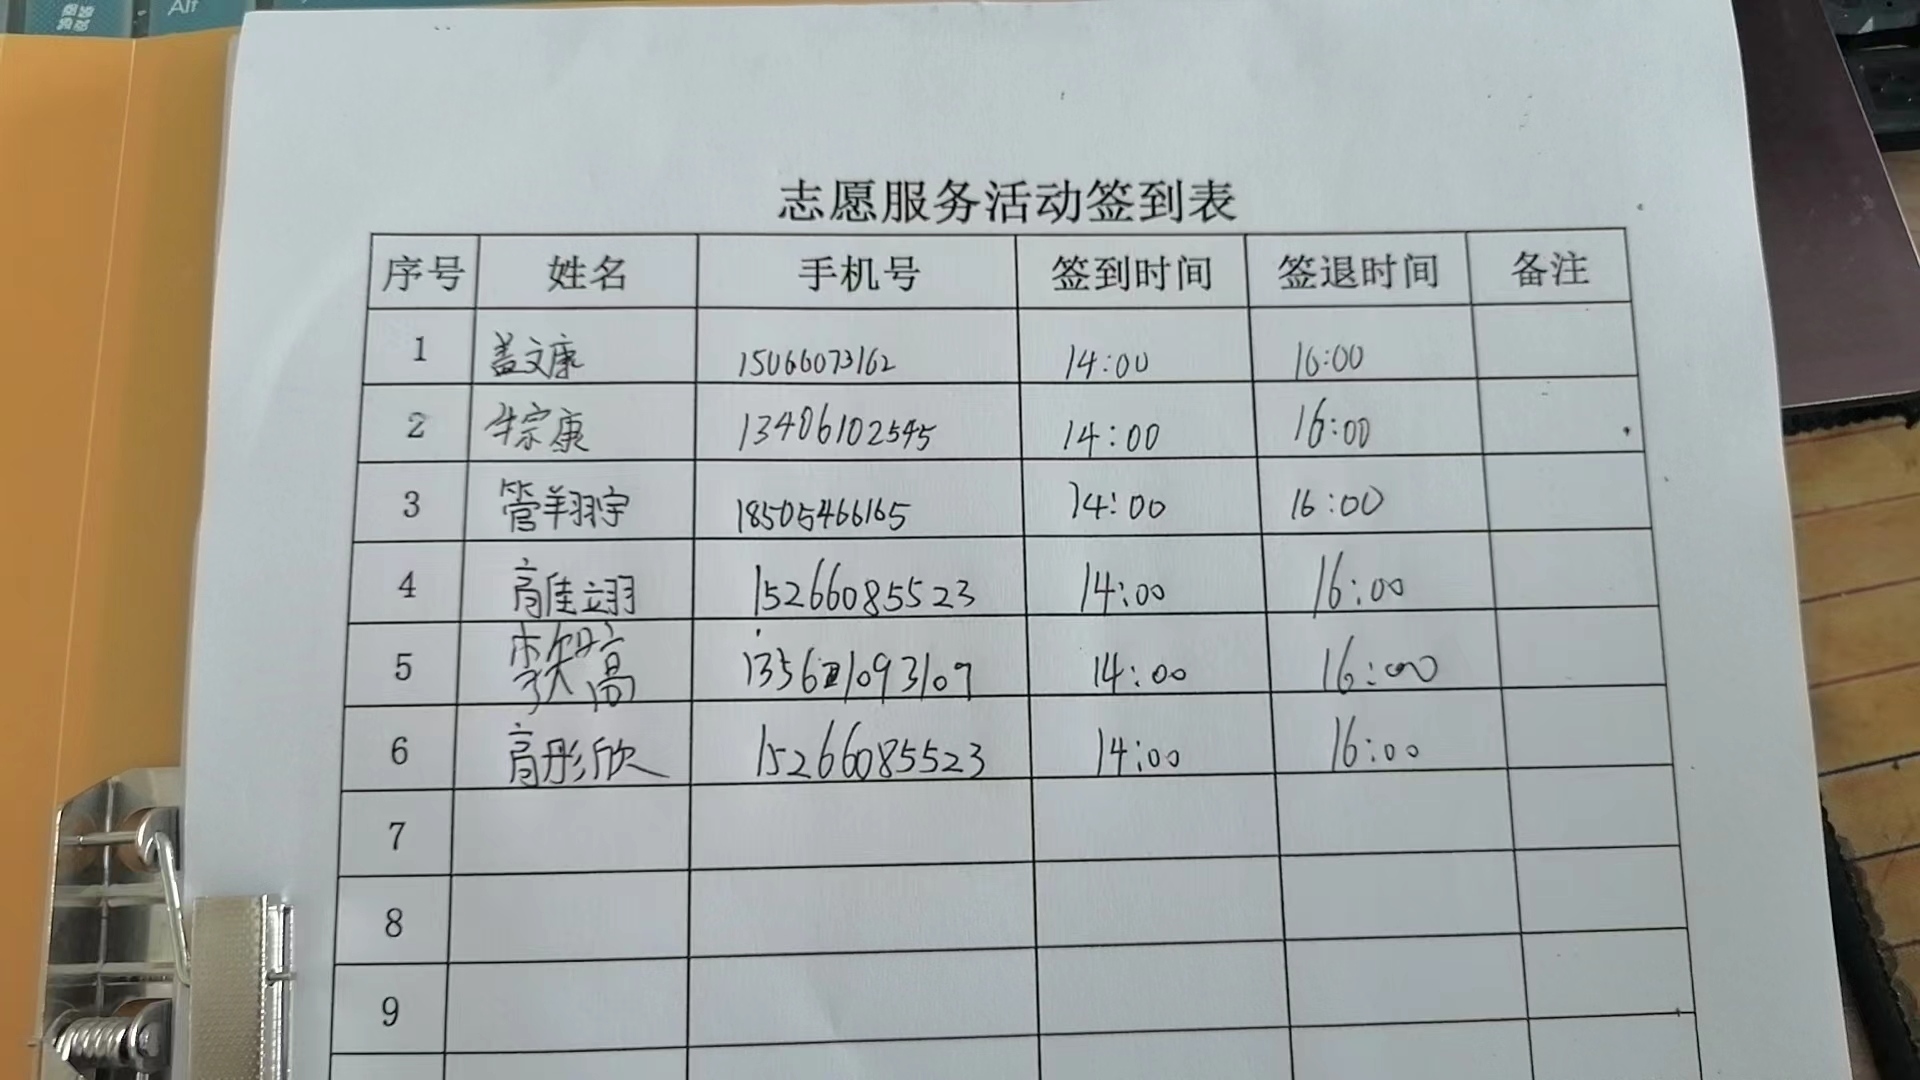 Alt
志愿服务活动签到表
序号 姓名 手机号 签到时间 签退时间 备注
1 盖文康 15066073162 14:00 16:00
2 牛宗康 13406102545 14:00 16:00
3 管翔宇 18505466165 14:00 16:00
4 高佳翊 15266085523 14:00 16:00
5 14:00 16:00
6 高彤欣 15266085523 14:00 16:00
7
8
9